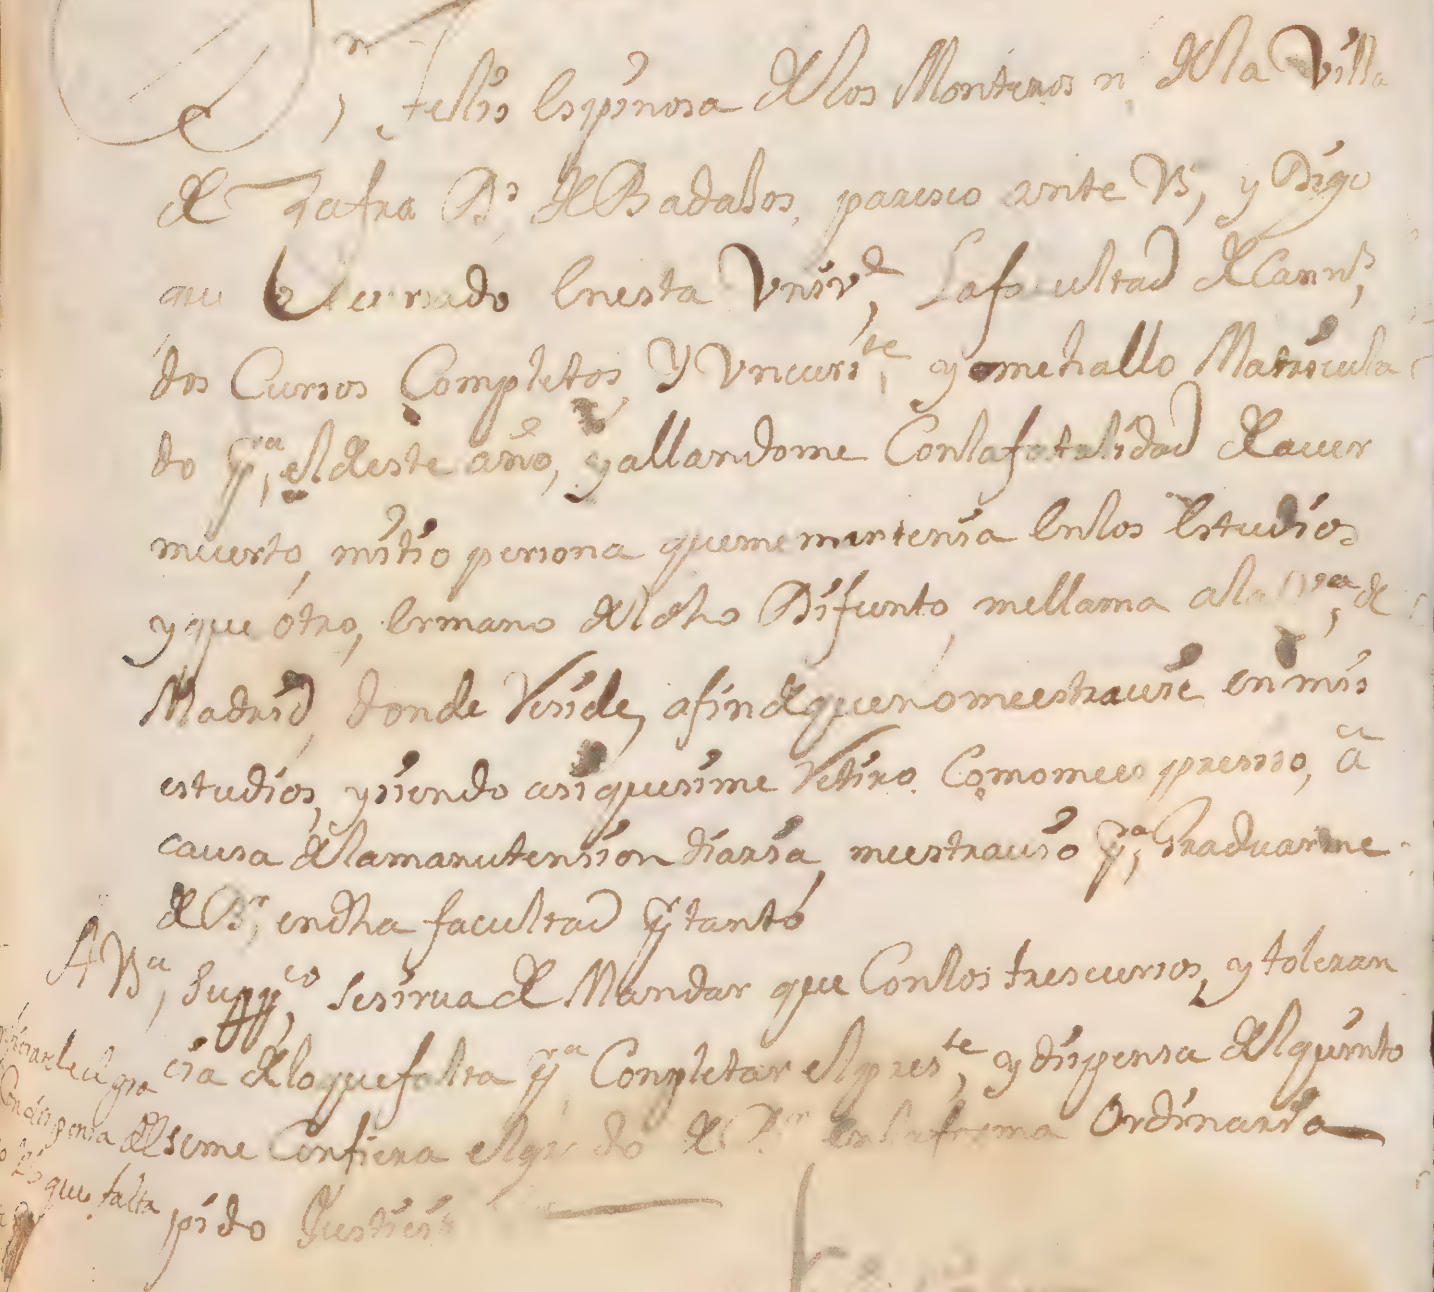 Dn Felis Espinosa de los Monteros n, de la Villa
de Zafra Bs, de Badasos, paresco ante VS, y Digo
que E cursado En esta Univd, La facultad de Cann.s,
dos Cursos Completos, Y Un curs te, y ome hallo Matricula
do pra, el de este año, y allandome Con la fatalidad de aver
muerto, mi tio persona que me mantenia En los Estudios
y que otro, Ermano del dho Difunto, me llama a la de
Madrid, donde Reside, a fin de que no me estravie en mis
estudios, y siendo asi que si me Retiro, Como me es presiso, a
causa de la manutension diaria, me estravio pra, Graduarme
de Br, en dha facultad pr tanto
A VSa, Suppco, se sirva de Mandar que Con los tres cursos, y toleran
cia de lo que falta pa Conpletar el preste, y dispensa del quinto
se me Confiera el grado de Br en la forma Ordinaria
pido Justicia
el gra
Con dispensa del
que falta